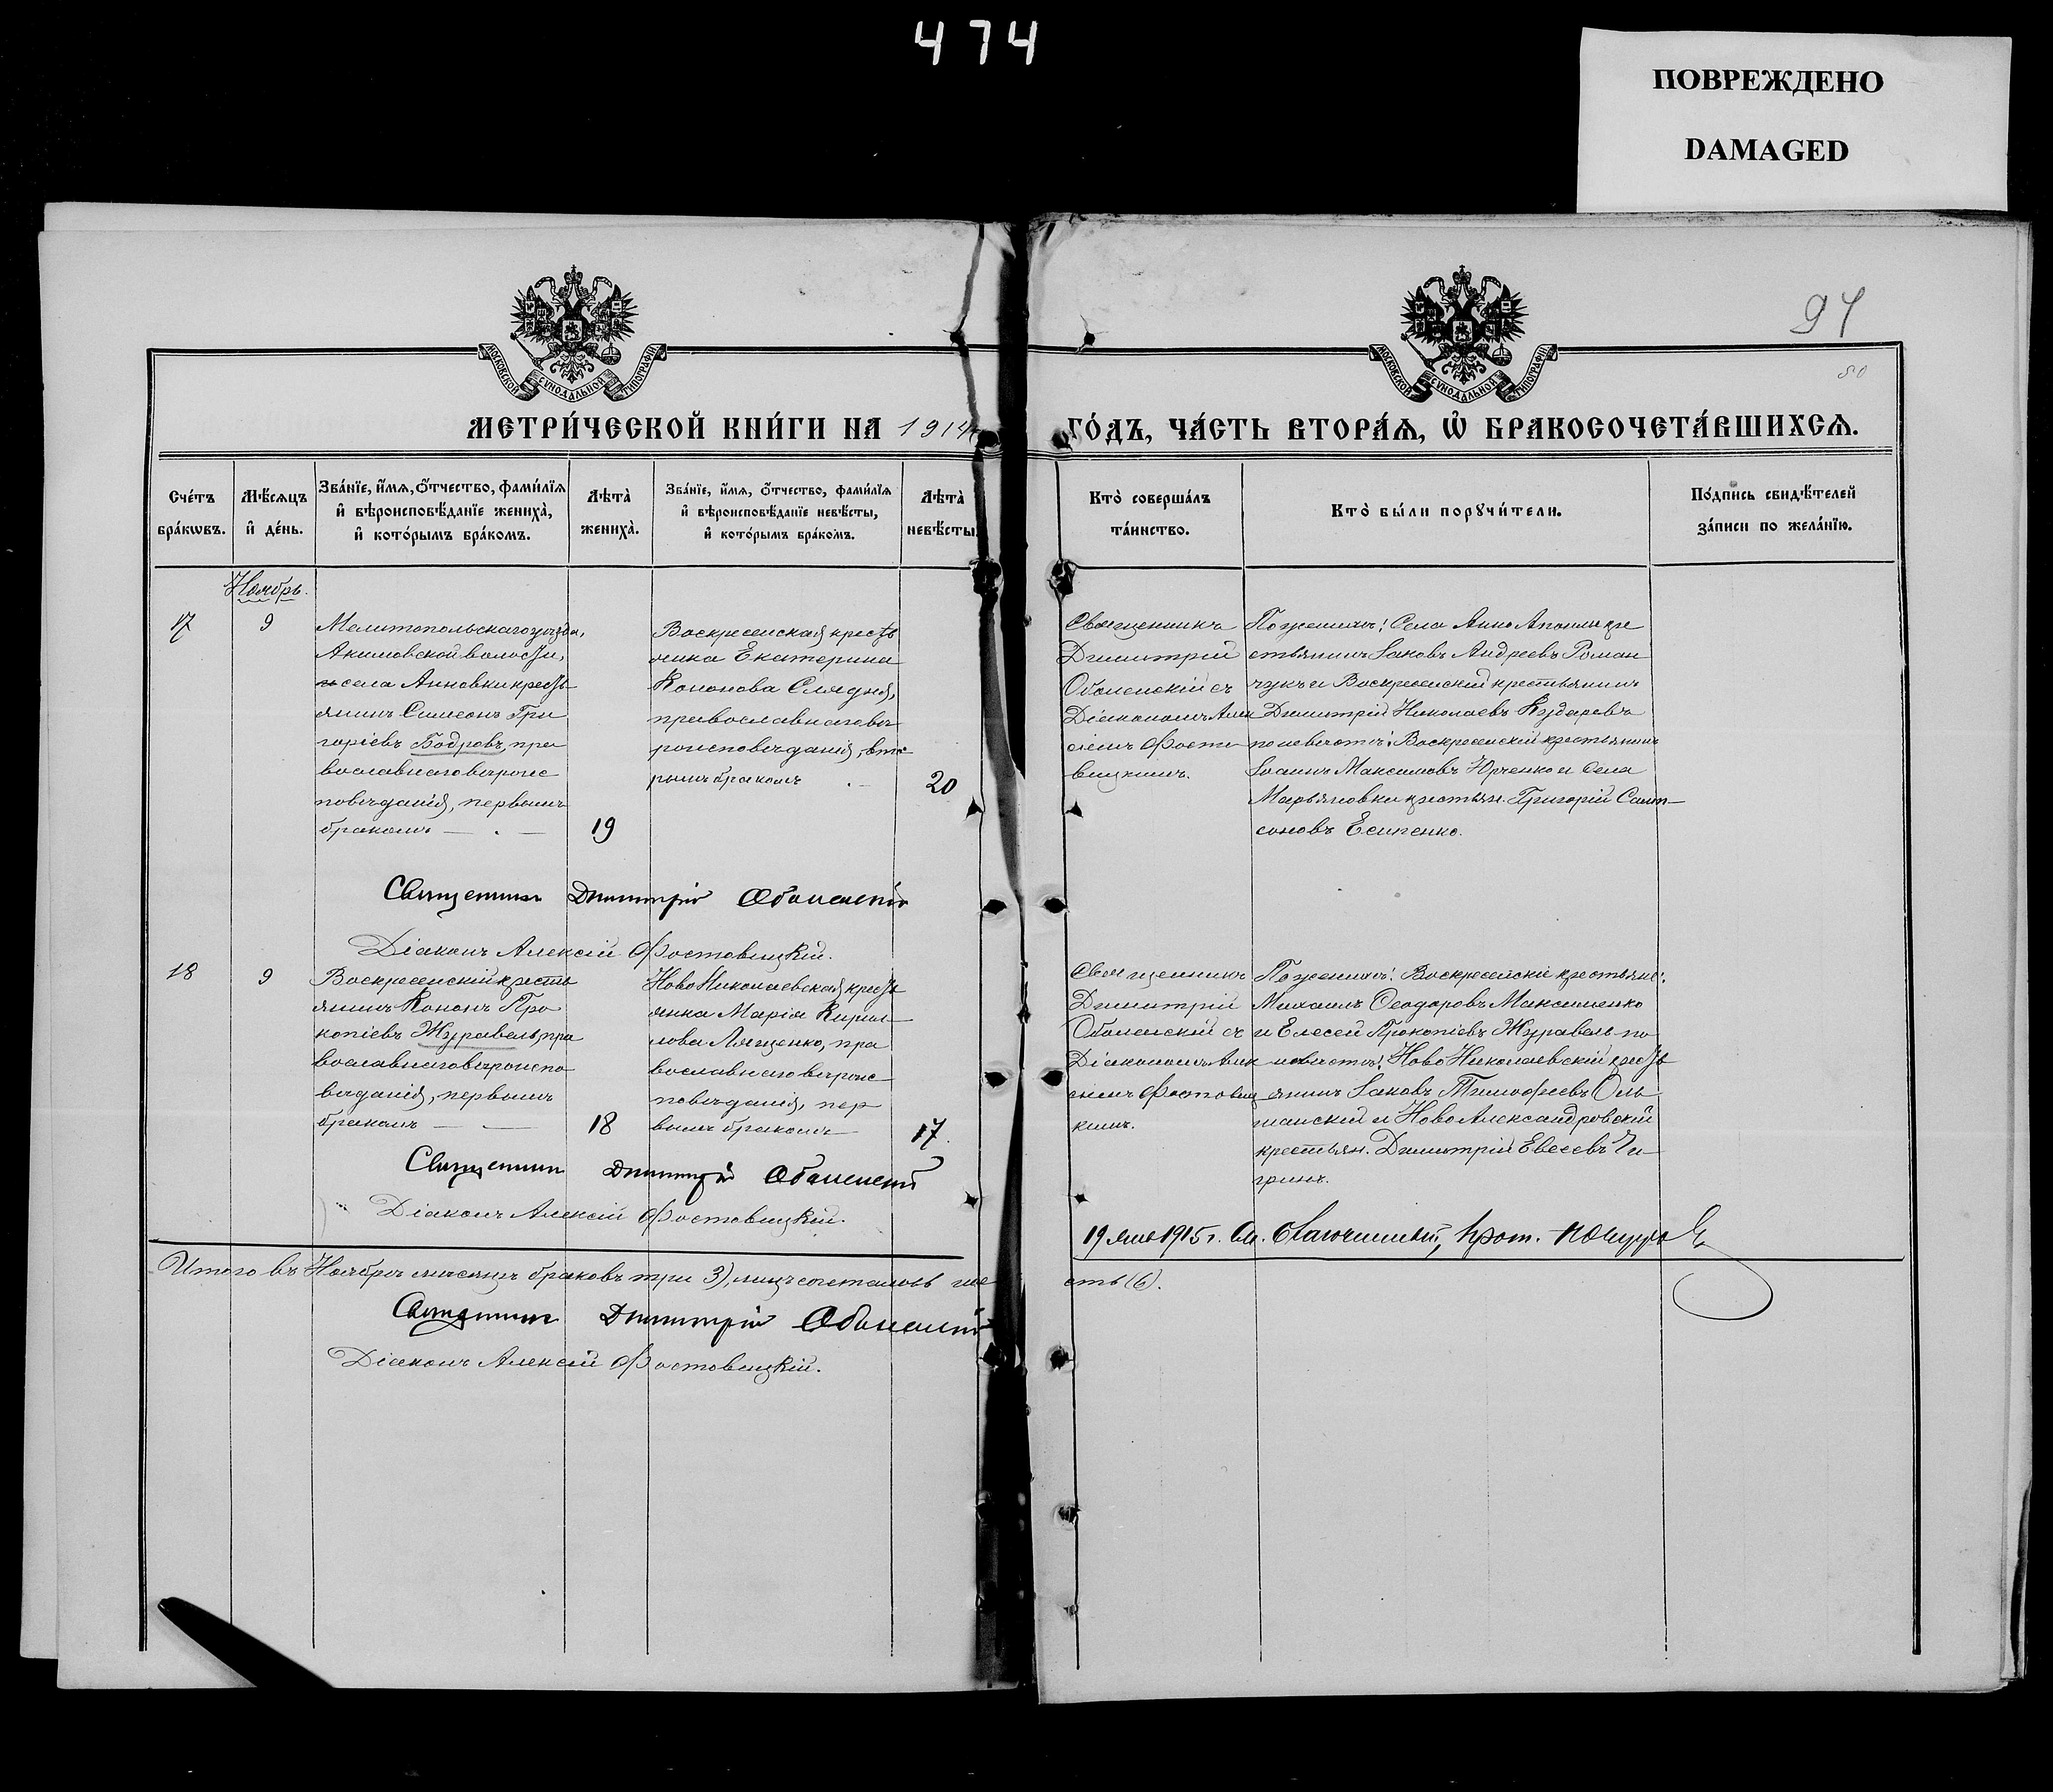 474
ПОВРЕЖДЕНО
DAMAGED
94
80
МОСКОВСКОЙ СУНОДАЛЬНОЙ ТИПОГРАФІИ
МОСКОВСКОЙ СУНОДАЛЬНОЙ ТИПОГРАФІИ
МЕТРИ́ЧЕСКОЙ КНИ́ГИ НА 1914 ГО́ДЪ, ЧА́СТЬ ВТОРА́Я, Ѡ БРАКОСОЧЕТА́ВШИХСЯ.
Сче́тъ бра́кѡвъ.
Мѣ́сяцъ и҆ де́нь.
Зва́нїе, и҆́мя, ѻ҆́тчество, фами́лїя
и҆ вѣроисповѣ́данїе жениха̀,
и҆ кото́рымъ бра́комъ.
Лѣта̀ жениха̀.
Зва́нїе, и҆́мя, ѻ҆́тчество, фами́лїя
и҆ вѣроисповѣ́данїе невѣ́сты,
и҆ кото́рымъ бра́комъ.
Лѣта̀ невѣ́сты.
Кто̀ соверша́лъ та́инство.
Кто̀ бы́ли порꙋчи́тели.
По́дпись свидѣ́телей за́писи по жела́нїю.
Ноябрь.
17
9
Мелитопольскаго уѣзда,
Акимовской волости,
села Анновки кресть
янинъ Симеонъ Гри
горіевъ Бодровъ, пра
вославнаго вѣроис
повѣданія, первымъ
бракомъ — . —
19
Воскресенская кресть
янка Екатерина
Кононова
православнаго вѣ
роисповѣданія, вто
рымъ бракомъ . —
20
Священникъ
Димитрій
Оболенскій съ
Діакономъ Алек
сіемъ Фосто
вицкимъ.
По женихѣ: Села Анно кре
стьянинъ Іаковъ Андреевъ Роман
чукъ и Воскресенскій крестьянинъ
Димитрій Николаевъ
по невѣстѣ: Воскресенскій крестьянинъ
Іоаннъ Максимовъ Юрченко и села
Марьяновки крестьян. Григорій Самп—
соновъ Есипенко.
Священникъ Димитрій Оболенскій
Діаконъ Алексій Фостовицкій.
18
9
Воскресенскій кресть
янинъ Кононъ Про
копіевъ Журавель, пра
вославнаго вѣроиспо
вѣданія, первымъ
бракомъ — —
18
Ново Николаевская кресть
янка Марія Кирил—
лова Лященко, пра
вославнаго вѣроис—
повѣданія, пер
вымъ бракомъ—
17.
Священникъ
Димитрій
Оболенскій съ
Діакономъ Алек
сіемъ Фостовиц
кимъ.
По женихѣ: Воскресенскіе крестьяне:
Михаилъ Ѳеодоровъ Максименко
и Елесей Прокопіевъ Журавель по
невѣстѣ: Ново Николаевскій кресть
янинъ Іаковъ Тимофеевъ Оль
шанскій и Ново Александровскій
крестьян. Димитрій Евсеевъ Чи—
гринъ.
Священникъ Димитрій Оболенскій
Діаконъ Алексій Фостовицкій.
19 1915 г.
Итого въ Ноябрѣ мѣсяцѣ браковъ три 3), лицъ сочеталось ше
сть (6).
Священникъ Димитрій Оболенскій
Діаконъ Алексій Фостовицкій.